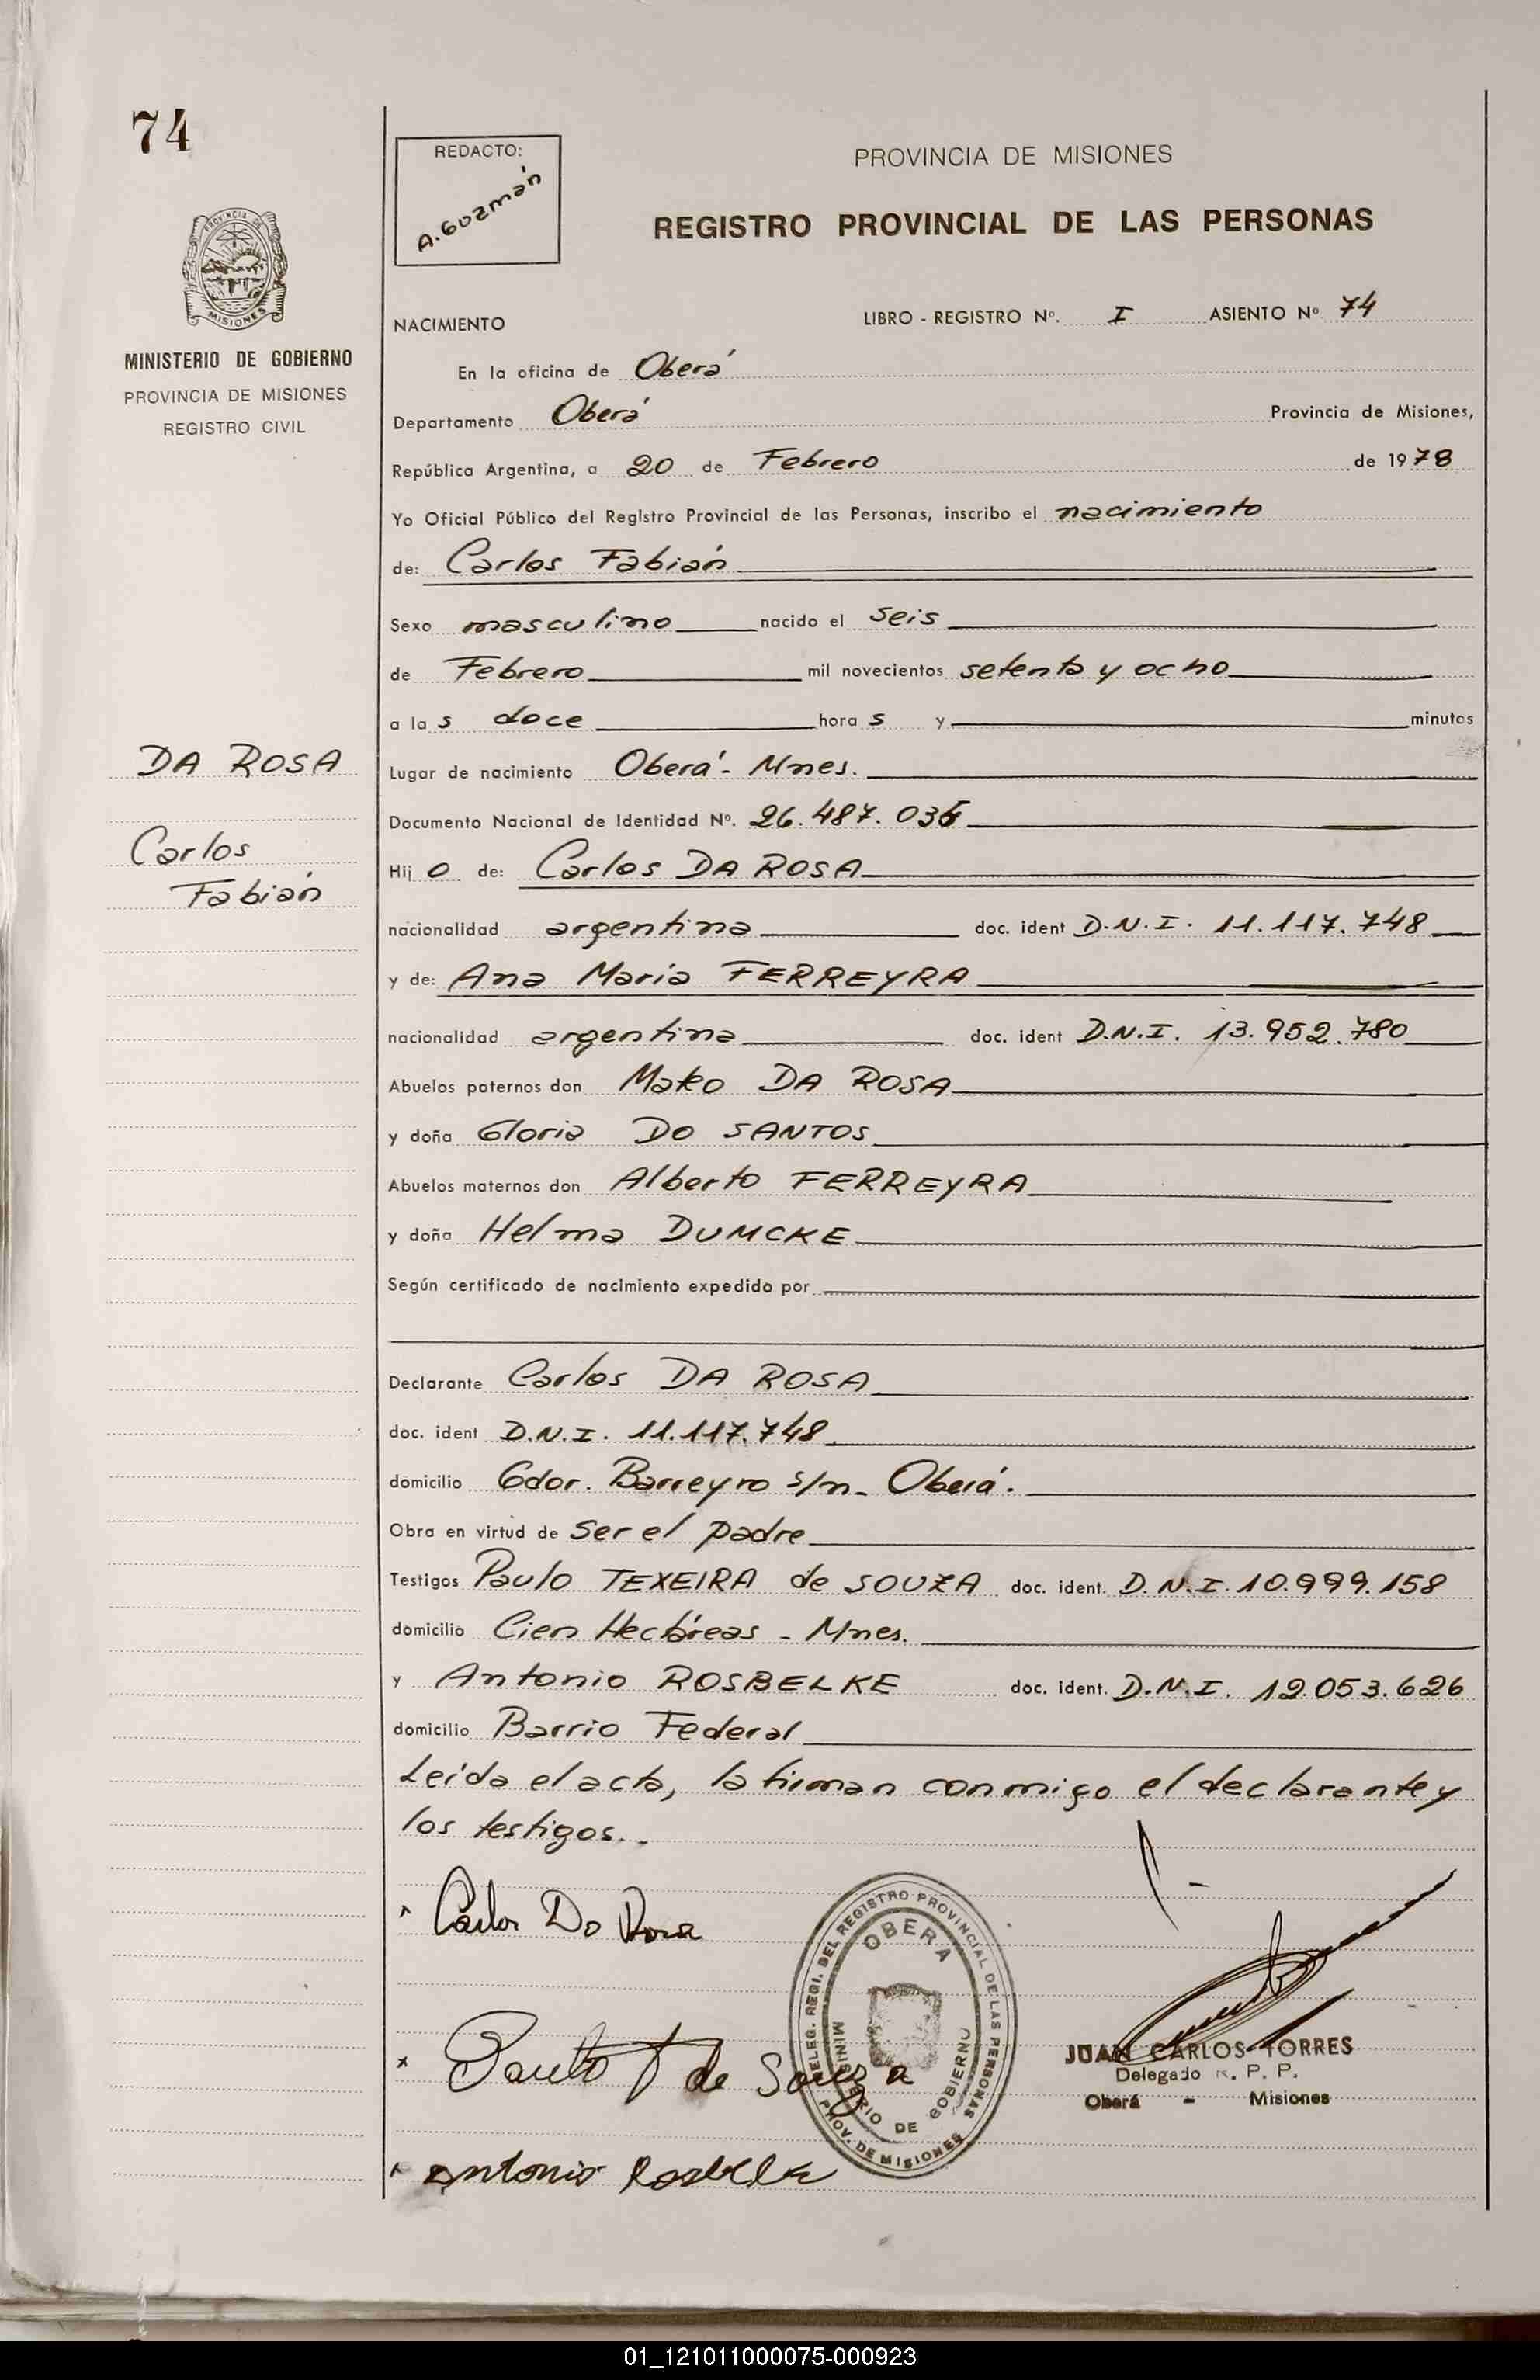 74
REDACTO:
A. GUZMÁN
PROVINCIA DE MISIONES
REGISTRO PROVINCIAL DE LAS PERSONAS
PROVINCIA DE
MISIONES
MINISTERIO DE GOBIERNO
PROVINCIA DE MISIONES
REGISTRO CIVIL
NACIMIENTO
LIBRO - REGISTRO Nº. I ASIENTO Nº 74
En la oficina de Oberá
Departamento Oberá Provincia de Misiones,
República Argentina, a 20 de Febrero de 1978
Yo Oficial Público del Registro Provincial de las Personas, inscribo el nacimiento
de: Carlos Fabián
Sexo masculino nacido el seis
de Febrero mil novecientos setenta y ocho
a las doce horas y minutos
DA ROSA
Carlos
Fabián
Lugar de nacimiento Oberá - Mnes.
Documento Nacional de Identidad Nº. 26.487.03
Hijo de: Carlos DA ROSA
nacionalidad argentina doc. ident D.N.I. 11.117.748
y de: Ana Maria FERREYRA
nacionalidad argentina doc. ident D.N.I. 13.952.780
Abuelos paternos don DA ROSA
y doña Gloria DO SANTOS
Abuelos maternos don Alberto FERREYRA
y doña Helma DUMCKE
Según certificado de nacimiento expedido por
Declarante Carlos DA ROSA
doc. ident D.N.I. 11.117.748
domicilio Gdor. Barreyro s/n - Oberá.
Obra en virtud de ser el padre
Testigos Paulo TEXEIRA de SOUZA doc. ident. D.N.I. 10.999.158
domicilio Cien Hectáreas - Mnes.
y Antonio ROSBELKE doc. ident. D.N.I. 12.053.626
domicilio Barrio Federal
Leída el acta, la firman conmigo el declarante y
los testigos..
Carlos Da Rosa
DELEG. REGI. DEL REGISTRO PROVINCIAL DE LAS PERSONAS
OBERA
MINISTERIO DE GOBIERNO
PROV. DE MISIONES
Paulo T de Souza
JUAN CARLOS TORRES
Delegado R. P. P.
Oberá - Misiones
Antonio Rosbelke
01_121011000075-000923